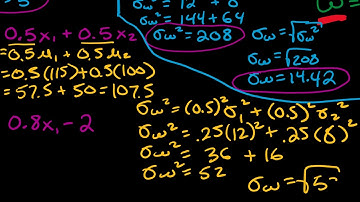 0.5x₁ + 0.5x₂
= 0.5μ₁ + 0.5μ₂
= 0.5(115) + 0.5(100)
= 57.5 + 50 = 107.5
0.8x₁ - 2
σω² = 144 + 64
σω² = 208
σω = √σω²
σω = √208
σω = 14.42
σω² = (0.5)² σ₁² + (0.5)² σ₂²
σω² = .25(12)² + .25(8)²
σω² = 36 + 16
σω² = 52
σω = √5